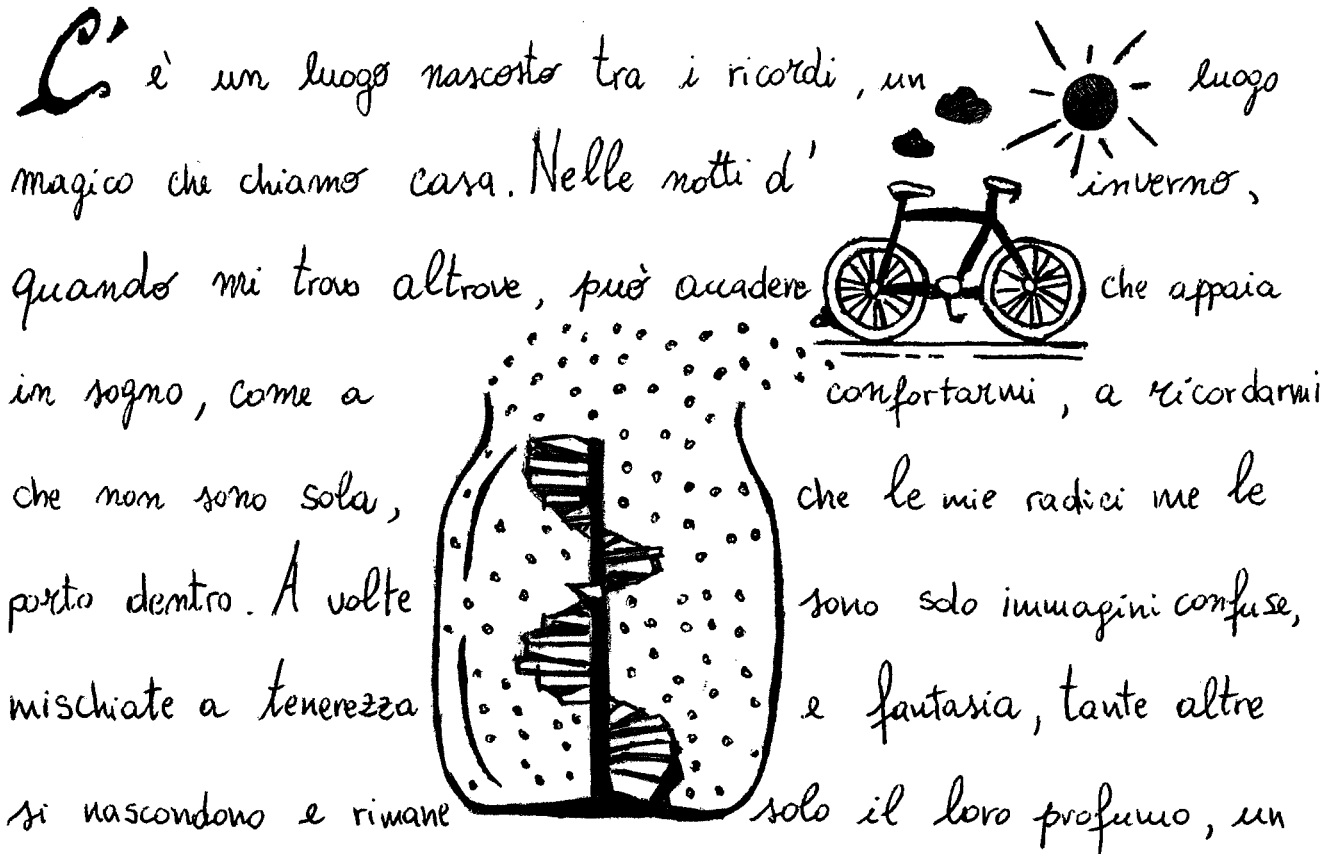 C'è un luogo nascosto tra i ricordi, un luogo
magico che chiamo casa. Nelle notti d'inverno,
quando mi trovo altrove, può accadere che appaia
in sogno, come a confortarmi, a ricordarmi
che non sono sola, che le mie radici me le
porto dentro. A volte sono solo immagini confuse,
mischiate a tenerezza e fantasia, tante altre
si nascondono e rimane solo il loro profumo, un